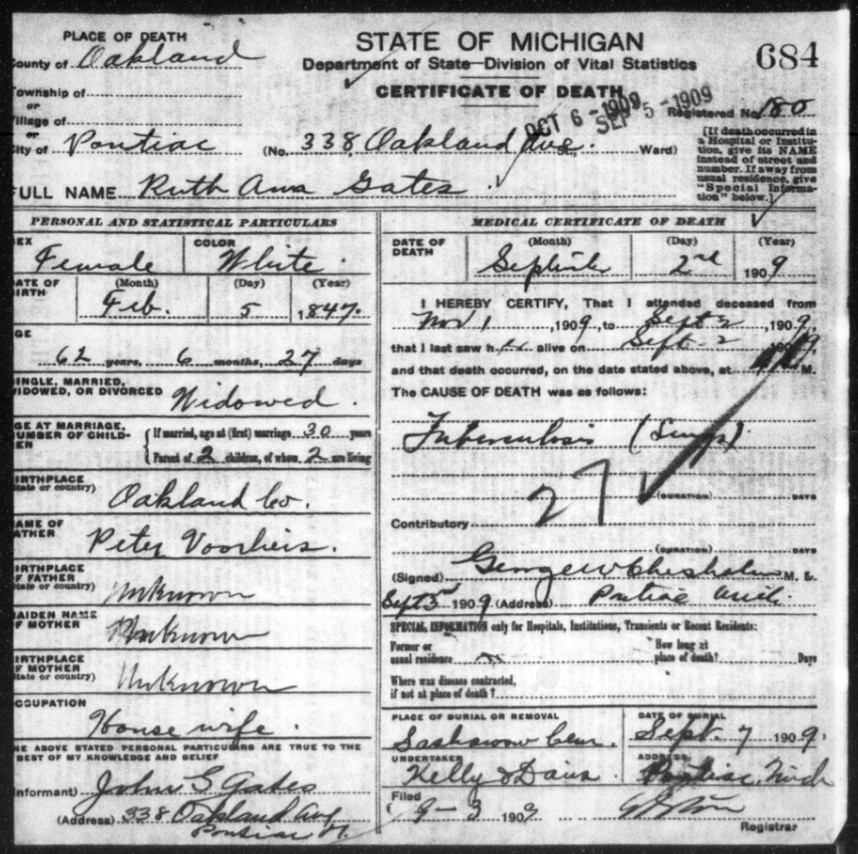 PLACE OF DEATH
County of Oakland
Township of
or
Village of
or
City of Pontiac
STATE OF MICHIGAN
Department of State—Division of Vital Statistics
CERTIFICATE OF DEATH
684
OCT 6 - 1909
SEP 5 - 1909
Registered No. 180
(No. 338, Oakland Ave. St., Ward)
[If death occurred in
a Hospital or Institu-
tion, give its NAME
instead of street and
number. If away from
usual residence, give
"Special Informa-
tion" below.]
FULL NAME Ruth Ann Gates
PERSONAL AND STATISTICAL PARTICULARS
SEX Female
COLOR White
DATE OF BIRTH
(Month) (Day) (Year)
Feb. 5 1847.
AGE
62 years, 6 months, 27 days
SINGLE, MARRIED,
WIDOWED, OR DIVORCED Widowed.
AGE AT MARRIAGE,
NUMBER OF CHILD-
REN
If married, age at (first) marriage 30 years
Parent of 2 children, of whom 2 are living
BIRTHPLACE
(State or country) Oakland Co.
NAME OF
FATHER Peter Voorheis.
BIRTHPLACE
OF FATHER
(State or country) Unknown
MAIDEN NAME
OF MOTHER Unknown
BIRTHPLACE
OF MOTHER
(State or country) Unknown
OCCUPATION
House wife.
THE ABOVE STATED PERSONAL PARTICULARS ARE TRUE TO THE
BEST OF MY KNOWLEDGE AND BELIEF
(Informant) John G Gates
(Address) 338 Oakland Ave
Pontiac
MEDICAL CERTIFICATE OF DEATH
DATE OF
DEATH
(Month) (Day) (Year)
2nd 1909
I HEREBY CERTIFY, That I attended deceased from
Nov 1, 1909, to Sept 2, 1909,
that I last saw h alive on Sept. 2 1909,
and that death occurred, on the date stated above, at M.
The CAUSE OF DEATH was as follows:
Tuberculosis (Lungs)
27
(DURATION) DAYS
Contributory
(DURATION) DAYS
(Signed) George W Chisholm M. D.
Sept 3rd 1909 (Address) Pontiac Mich.
SPECIAL INFORMATION only for Hospitals, Institutions, Transients or Recent Residents:
Former or
usual residence
How long at
place of death? Days
Where was disease contracted,
if not at place of death?
PLACE OF BURIAL OR REMOVAL
Sashawaw Cem.
DATE OF BURIAL
Sept. 7 1909.
UNDERTAKER
Kelly & Davis
ADDRESS
Pontiac, Mich
Filed
9-3 1909
Registrar